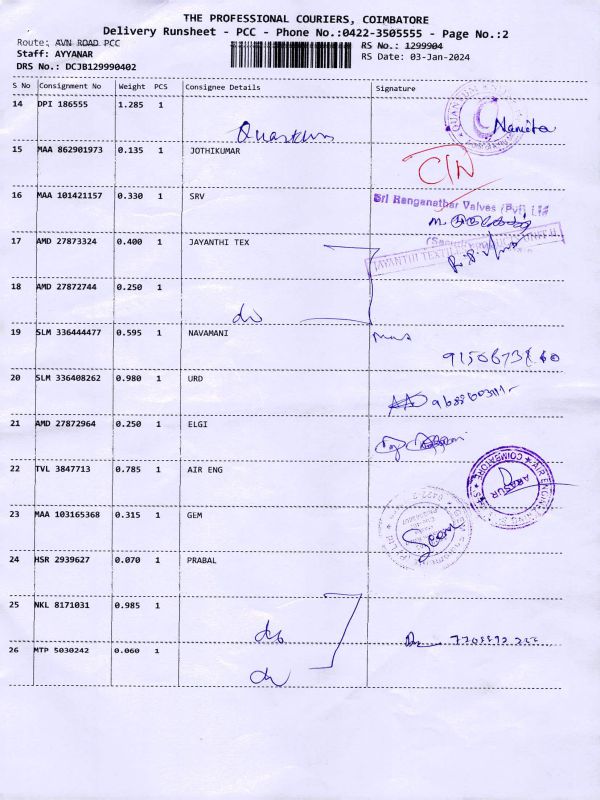 THE PROFESSIONAL COURIERS, COIMBATORE
Delivery Runsheet - PCC - Phone No.:0422-3505555 - Page No.:2
Route: AVN ROAD PCC
RS No.: 1299904
Staff: AYYANAR
RS Date: 03-Jan-2024
DRS No.: DCJB129990402
S No Consignment No Weight PCS Consignee Details Signature
14 DPI 186555 1.285 1
Quantum Namita
15 MAA 862901973 0.135 1 JOTHIKUMAR
C/N
16 MAA 101421157 0.330 1 SRV
Sri Ranganathar Valves (Pvt) Ltd
17 AMD 27873324 0.400 1 JAYANTHI TEX
JAYANTHI TEXTILE
18 AMD 27872744 0.250 1
do
19 SLM 336444477 0.595 1 NAVAMANI
20 SLM 336408262 0.980 1 URD
21 AMD 27872964 0.250 1 ELGI
22 TVL 3847713 0.785 1 AIR ENG
AIR ENGINEERING
COIMBATORE
ARASUR
23 MAA 103165368 0.315 1 GEM
24 HSR 2939627 0.070 1 PRABAL
25 NKL 8171031 0.985 1
do
26 MTP 5030242 0.060 1
do